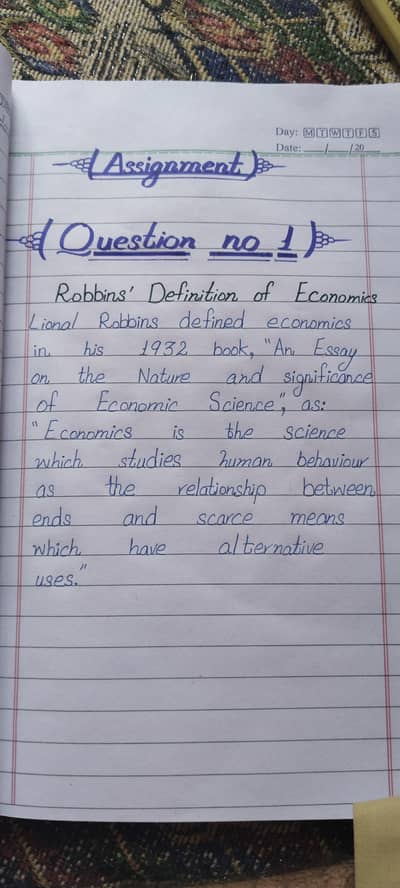 Day: M T W T F S
Date: __/__/20__
Assignment
Question no 1
Robbins' Definition of Economics
Lional Robbins defined economics
in his 1932 book, "An Essay
on the Nature and significance
of Economic Science", as:
"Economics is the science
which studies human behaviour
as the relationship between
ends and scarce means
which have alternative
uses."